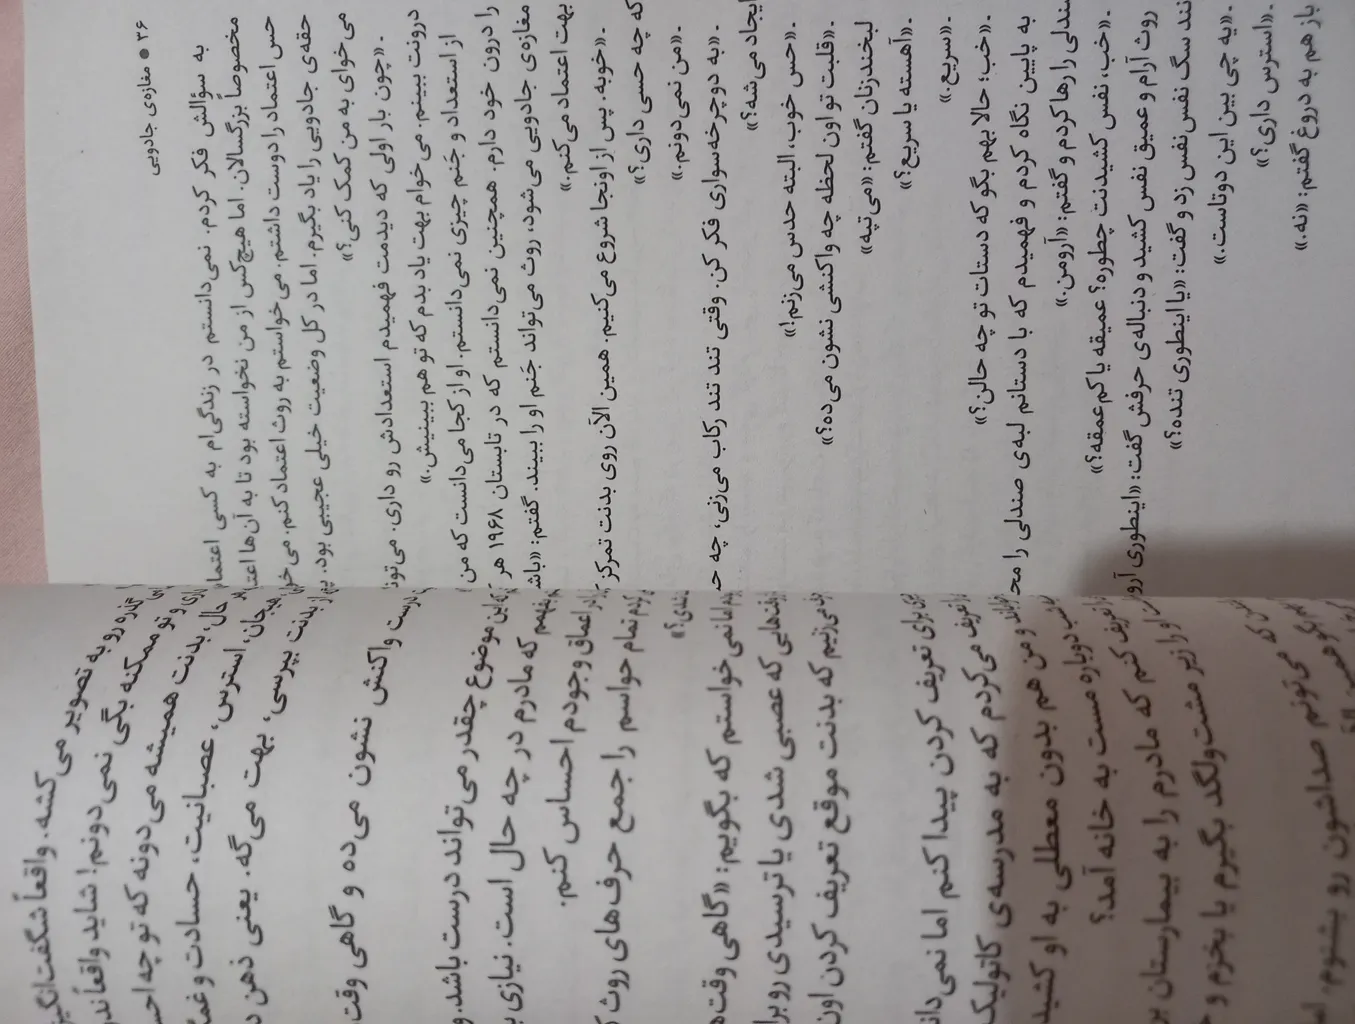 ۳۶ • مغازه‌ی جادویی
به سؤالش فکر کردم. نمی‌دانستم در زندگی‌ام به کسی اعتماد
مخصوصاً بزرگسالان. اما هیچ‌کس از من نخواسته بود تا به آن‌ها
حس اعتماد را دوست داشتم. می‌خواستم به روث اعتماد کنم.
حقه‌ی جادویی را یاد بگیرم. اما در کل وضعیت خیلی عجیبی بود.
می‌خوای به من کمک کنی؟»
.«چون بار اولی که دیدمت فهمیدم استعدادش رو داری.
درونت ببینم. می‌خوام بهت یاد بدم که تو هم ببینیش.»
از استعداد و جَنَم چیزی نمی‌دانستم. او از کجا می‌دانست که من
را درون خود دارم. همچنین نمی‌دانستم که در تابستان ۱۹۶۸ هر
مغازه‌ی جادویی می‌شود، روث می‌تواند جَنَم او را ببیند. گفتم:
بهت اعتماد می‌کنم.»
.«خوبه. پس از اونجا شروع می‌کنیم. همین الآن روی بدنت تمرکز
که چه حسی داری؟»
.«من نمی‌دونم.»
.«به دوچرخه‌سواری فکر کن. وقتی تند تند رکاب می‌زنی، چه
ایجاد می‌شه؟»
.«حس خوب، البته حدس می‌زنم!»
.«قلبت تو اون لحظه چه واکنشی نشون می‌ده؟»
لبخندزنان گفتم: «می‌تپه»
.«آهسته یا سریع؟»
.«سریع.»
.«خب؛ حالا بهم بگو که دستات تو چه حالن؟»
به پایین نگاه کردم و فهمیدم که با دستانم لبه‌ی صندلی را
صندلی را رها کردم و گفتم: «آرومن.»
.«خب، نفس کشیدنت چطوره؟ عمیقه یا کم‌عمقه؟»
روث آرام و عمیق نفس کشید و دنباله‌ی حرفش گفت: «اینطوری
سگ نفس‌نفس زد و گفت: «یا اینطوری تنده؟»
.«یه چی بین این دوتاست.»
.«استرس داری؟»
باز هم به دروغ گفتم: «نه.»
رو به تصویر می‌کشه. واقعاً
و تو ممکنه بگی نمی‌دونم! شاید واقعاً
حال، بدنت همیشه می‌دونه که تو چه
هیجان، استرس، عصبانیت، حسادت و
از بدنت بپرسی، بهت می‌گه. یعنی ذهن
واکنش نشون می‌ده و گاهی
این موضوع چقدر می‌تواند درست باشد.
که مادرم در چه حال است. نیازی
اعماق وجودم احساس کنم.
تمام حواسم را جمع حرف‌های روث
نمی‌خواستم که بگویم: «گاهی
که عصبی شدی یا ترسیدی رو
که بدنت موقع تعریف کردن اون
برای تعریف کردن پیدا کنم اما
تعریف می‌کردم که به مدرسه‌ی کاتولیک
و من هم بدون معطلی به او
دوباره مست به خانه آمد؟
تعریف کنم که مادرم را به بیمارستان
او را زیر مشت‌ولگد بگیرم یا بخزم و
می‌تونم صداشون رو بشنوم.